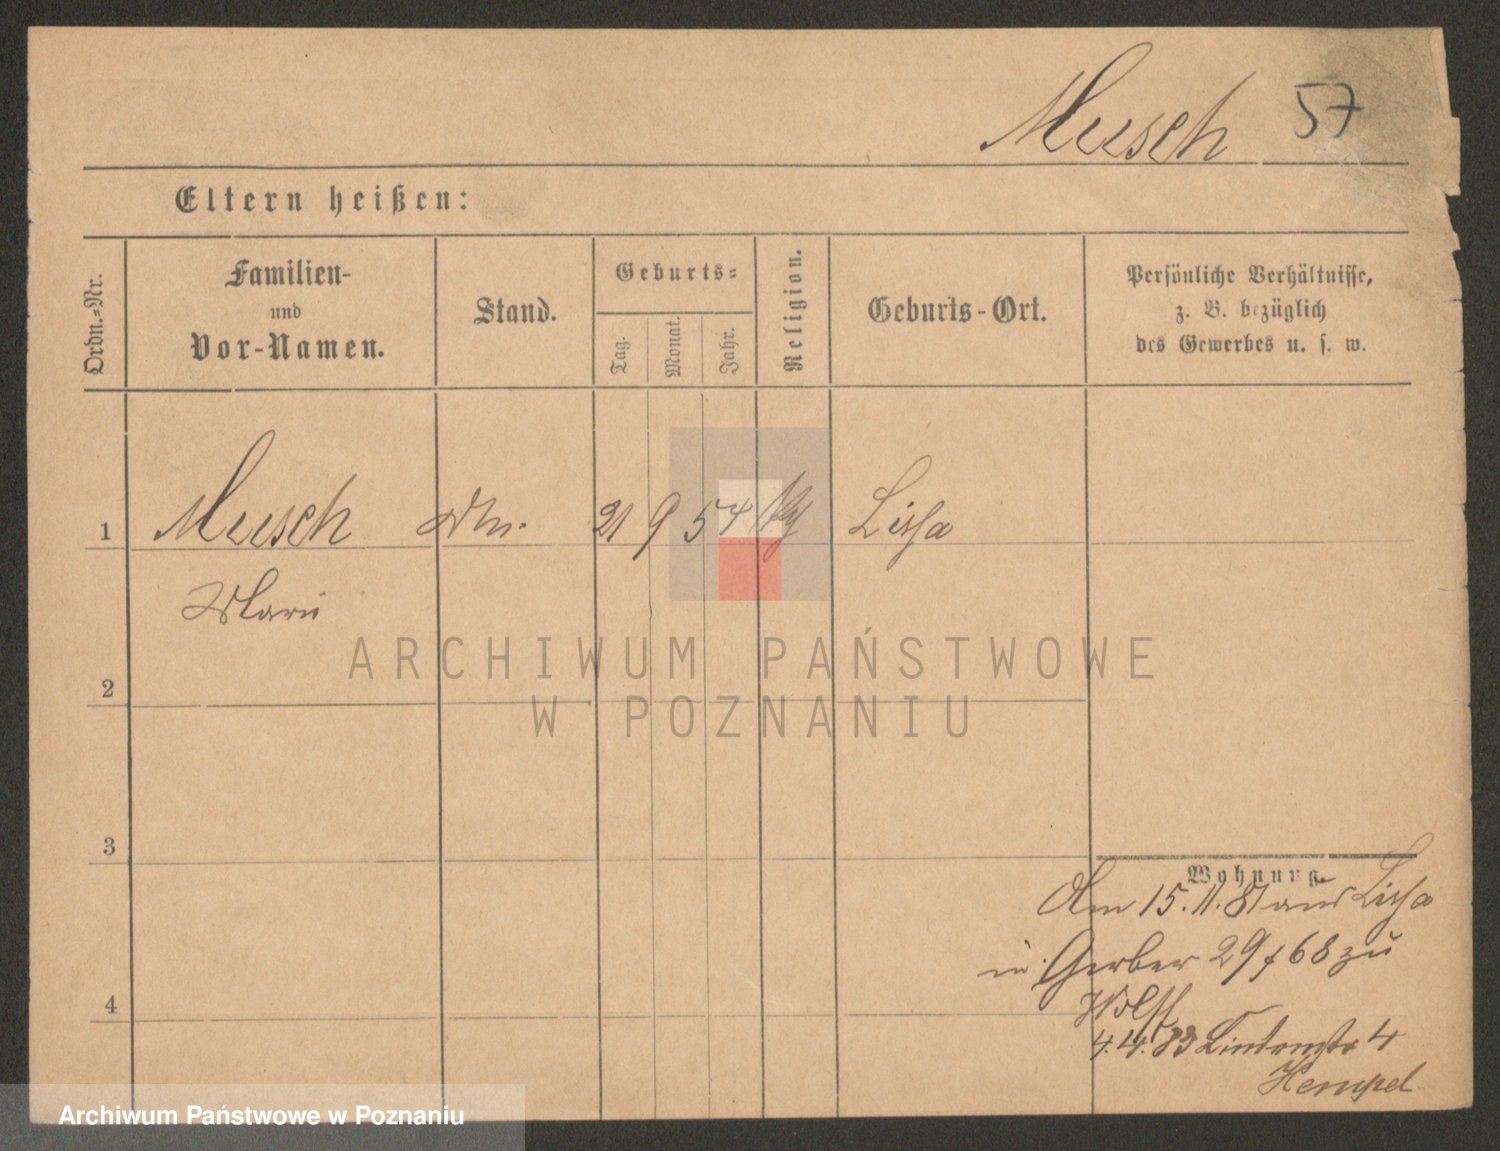 Musch 57
Eltern heißen:
Ordn.-Nr.
Familien-
und
Vor-Namen.
Stand.
Geburts-
Tag.
Monat.
Jahr.
Religion.
Geburts-Ort.
Persönliche Verhältnisse,
z. B. bezüglich
des Gewerbes u. s. w.
1 Musch 21 9 54 Lissa
Marie
2
3
Wohnung.
Am 15.11.81 aus Lissa
in Gerber 29 68 zu
Wolff
4
4.4.83 Lindenstr 4
Hempel
ARCHIWUM PAŃSTWOWE
W POZNANIU
Archiwum Państwowe w Poznaniu